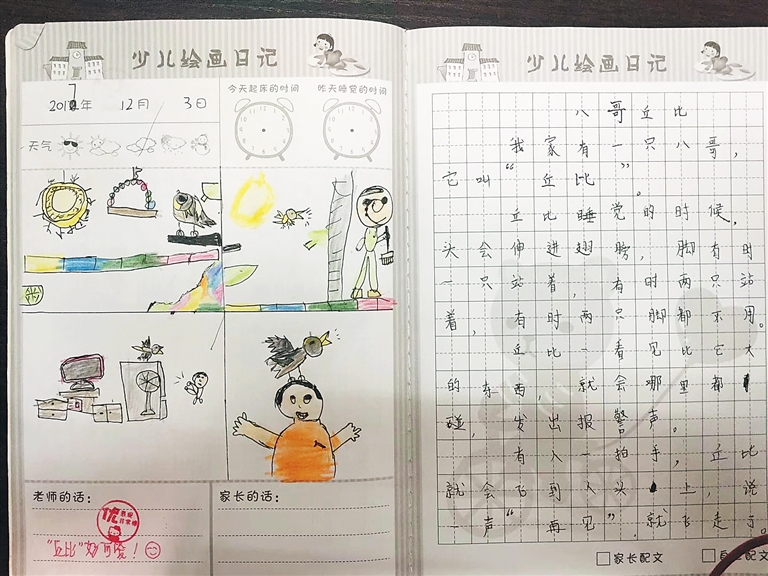 少儿绘画日记
今天起床的时间 昨天睡觉的时间
2017年 12月 3日
天气
老师的话：
家长的话：
优
“丘比”妙可爱！
少儿绘画日记
八哥丘比
我家有一只八哥，
它叫“丘比”。
丘比睡觉的时候，
头会伸进翅膀，脚有时
一只站着，有时两只站
着，有时两只脚都不用。
丘比一看见比它大
的东西，就会哪里都
碰，发出报警声。
有人一拍手，丘比
就会飞到人头上，说
一声“再见”，就飞走了。
家长配文